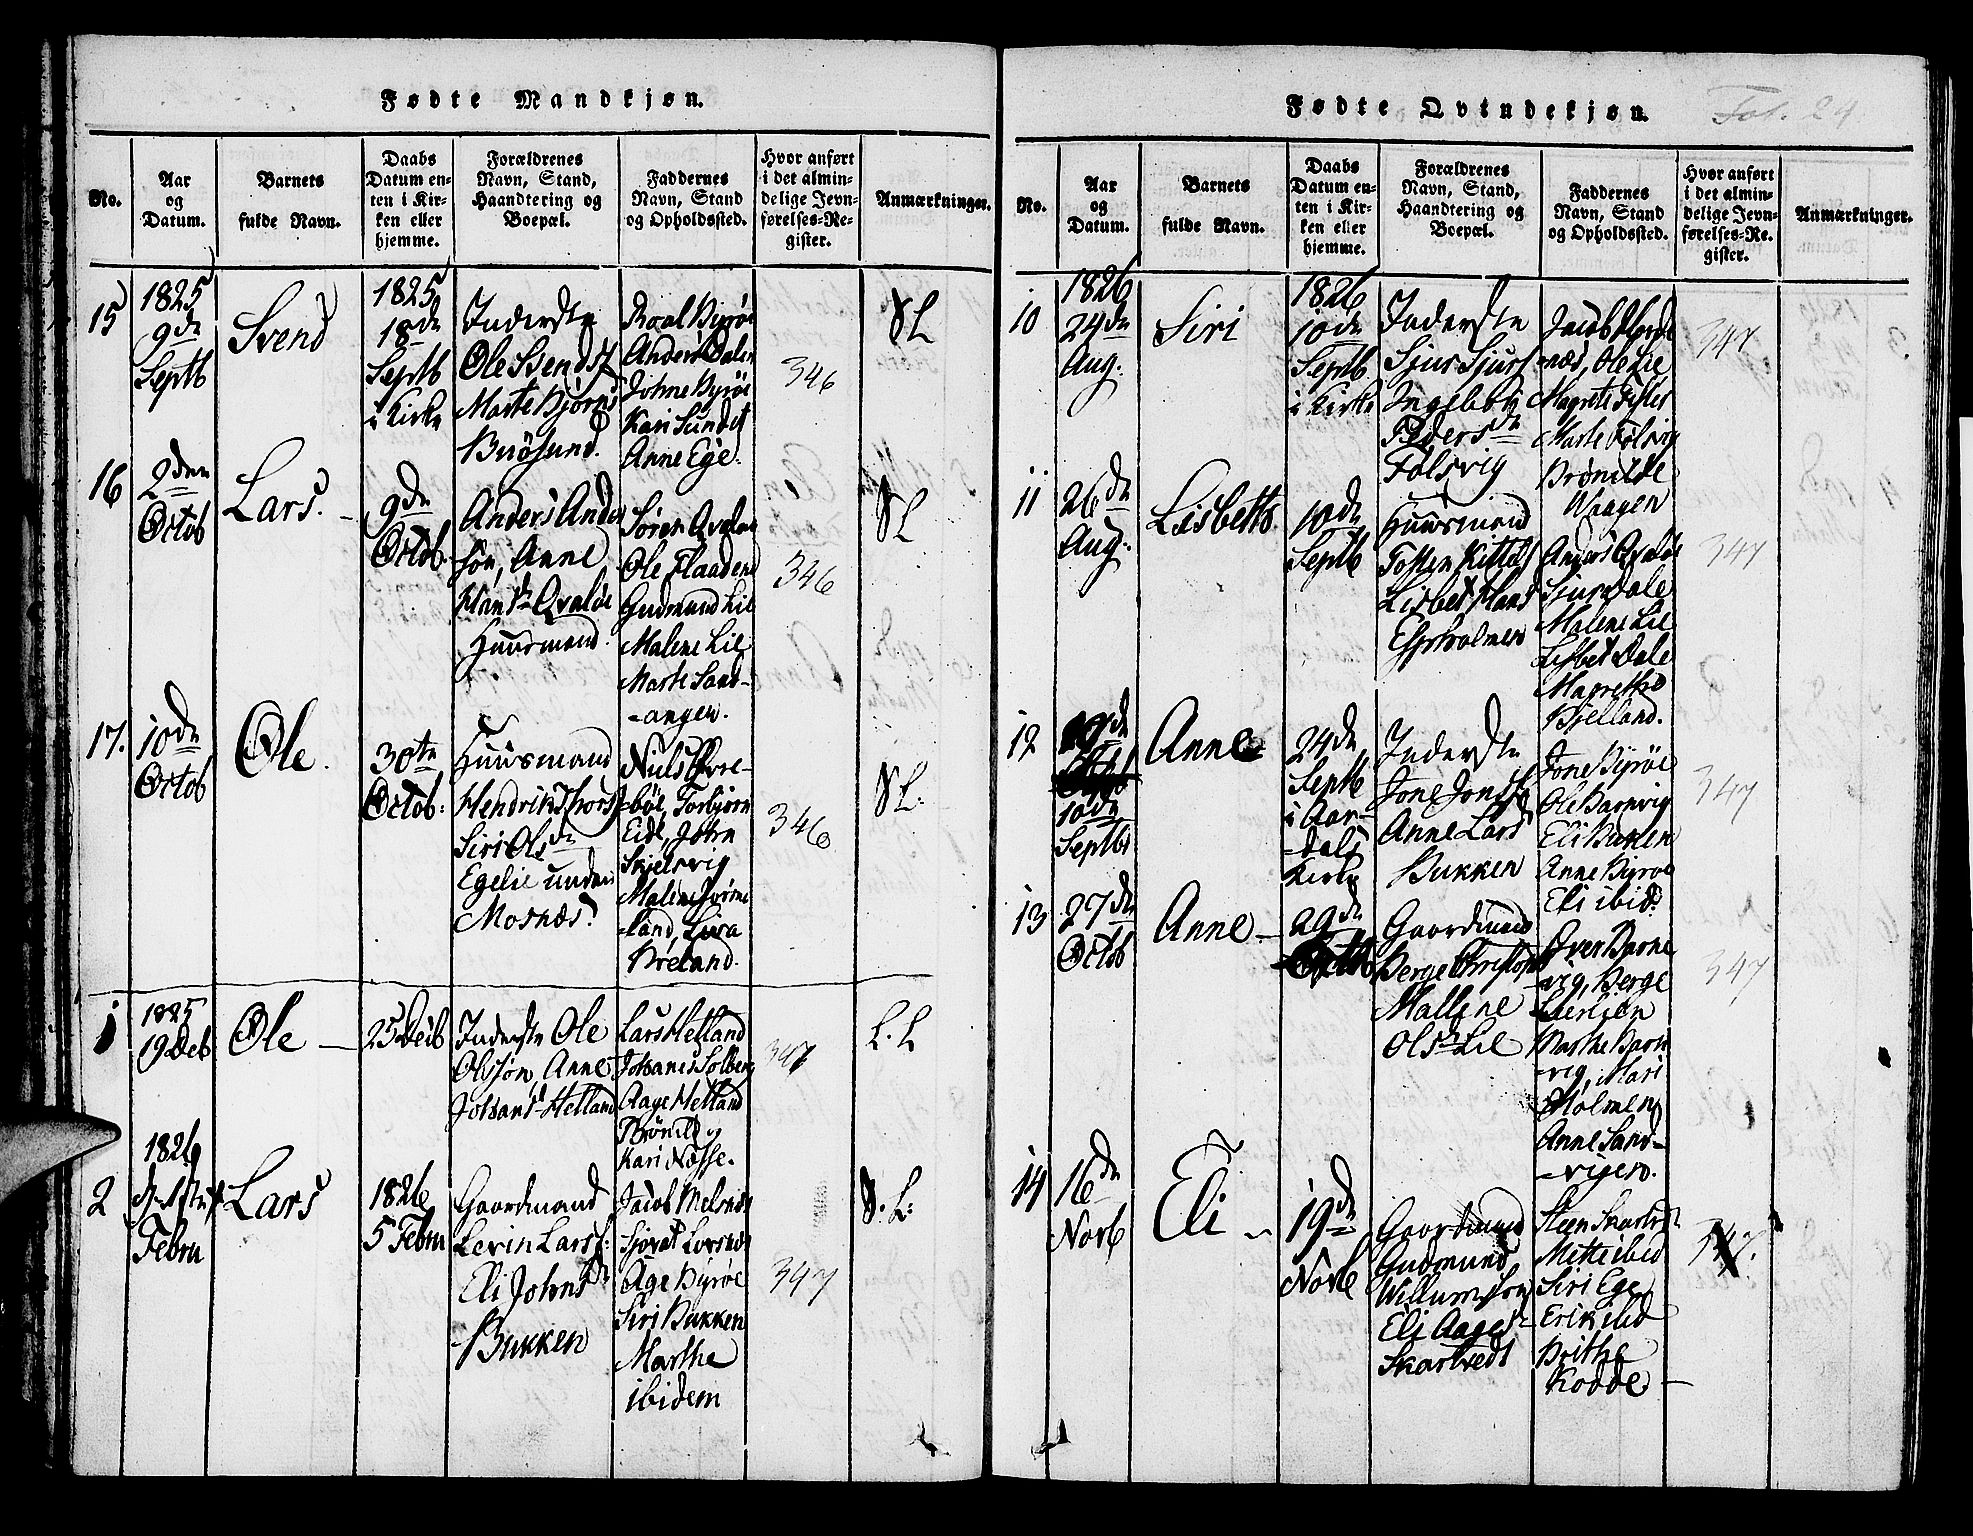 Fødte Mandkjøn.
No.
Aar
og
Datum.
Barnets
fulde Navn.
Daabs
Datum en-
ten i Kir-
ken eller
hjemme.
Forældrenes
Navn, Stand,
Haandtering og
Boepæl.
Faddernes
Navn, Stand
og Opholdssted.
Hvor anført
i det almin-
delige Jevn-
førelses-Re-
gister.
Anmærkninger.
15
1825
9de
Septb
Svend
1825
18de
Septb
i Kirke
Inderste
Ole Svends
Marte Bjørns
Buøsund.
Roal Byrøe
Anders Dalen
Johne Byrøe
Kari Sundet
Anne Ege.
346
16
2den
Octob
Lars.
9de
Octob.
Anders Ander
søn, Anne
Hansd Qvaløe
Huusmand.
Søren Qvaløe
Ole Flaadene
Gudmund Lie
Malene Lie
Marte Sand-
-angen.
346
17.
10de
Octob
Ole.
30te
Octob:
Huusmand
Hendrik Thors
Siri Olsdr
Egelie under
Mosnæs.
Niels
-bøe, Torbjørn
Eide, John
Skjelsvig
Malene
-land, Liva
Breland.
346
1
1825
19 Deb
Ole
25 Deib
Inderste Ole
Olssøn, Anne
Johansd Helland
Lars Helland
Johanes Solberg
Aage Helland
Brønild og
Kari Nøsse.
347
L. L
2
1826
Febru
Lars
1826
5 Febru
Gaardmand
Levin Lars:
Eli Johnsdr
Bukken
Jacob Melsnæs
Lorsnæs
Age Byrøe
Siri Bukken
Marthe
ibidem
347
Fødte Qvindekjøn.
Fol. 24
No.
Aar
og
Datum.
Barnets
fulde Navn.
Daabs
Datum en-
ten i Kir-
ken eller
hjemme.
Forældrenes
Navn, Stand,
Haandtering og
Boepæl.
Faddernes
Navn, Stand
og Opholdssted.
Hvor anført
i det almin-
delige Jevn-
førelses-Re-
gister.
Anmærkninger.
10
1826
24de
Aug.
Siri
1826
10de
Septb
i Kirke
Inderste
Sjur Sjurs
Ingebb
Pedersdr
Følsvig
Jacob
-næs, Ole Lie
Magrete
Marte Følsvig
Brønilde
Waagen
347
11
26de
Aug.
Lisbeth
10de
Septb
Huusmand
Tosten Kittels
Lisbet Hans
Espholmen
Anders Qvaløe
Sjur Dale
Malene Lie
Lisbet Dale
Magrethe
Bjelland.
347
12
10de
Septbr
Anne
24de
Septb
i Aar-
-dals
Kirke
Inderste
Jone Jonss
Anne Lars
Bukken
Jone Byrøe
Ole Barnvig
Eli Bukken
Anne Byrøe
Eli ibid:
347
13
27de
Octob
Anne
29de
Gaardmand
Berge Christoph
Mallene
Olsdr Lie
Even Barne
-vig, Berge
Marthe Barn
-vig, Mari
Holmen
Anne Sand-
-vigen.
347
14
16de
Novb
Eli
19de
Novb
Gaardmand
Gudmund
Willumsøn
Eli Aagesdr
Skartvedt
Steen Skartvet
Mette ibid
Siri Ege
Erik ibid
Brithe
Kodde
347.